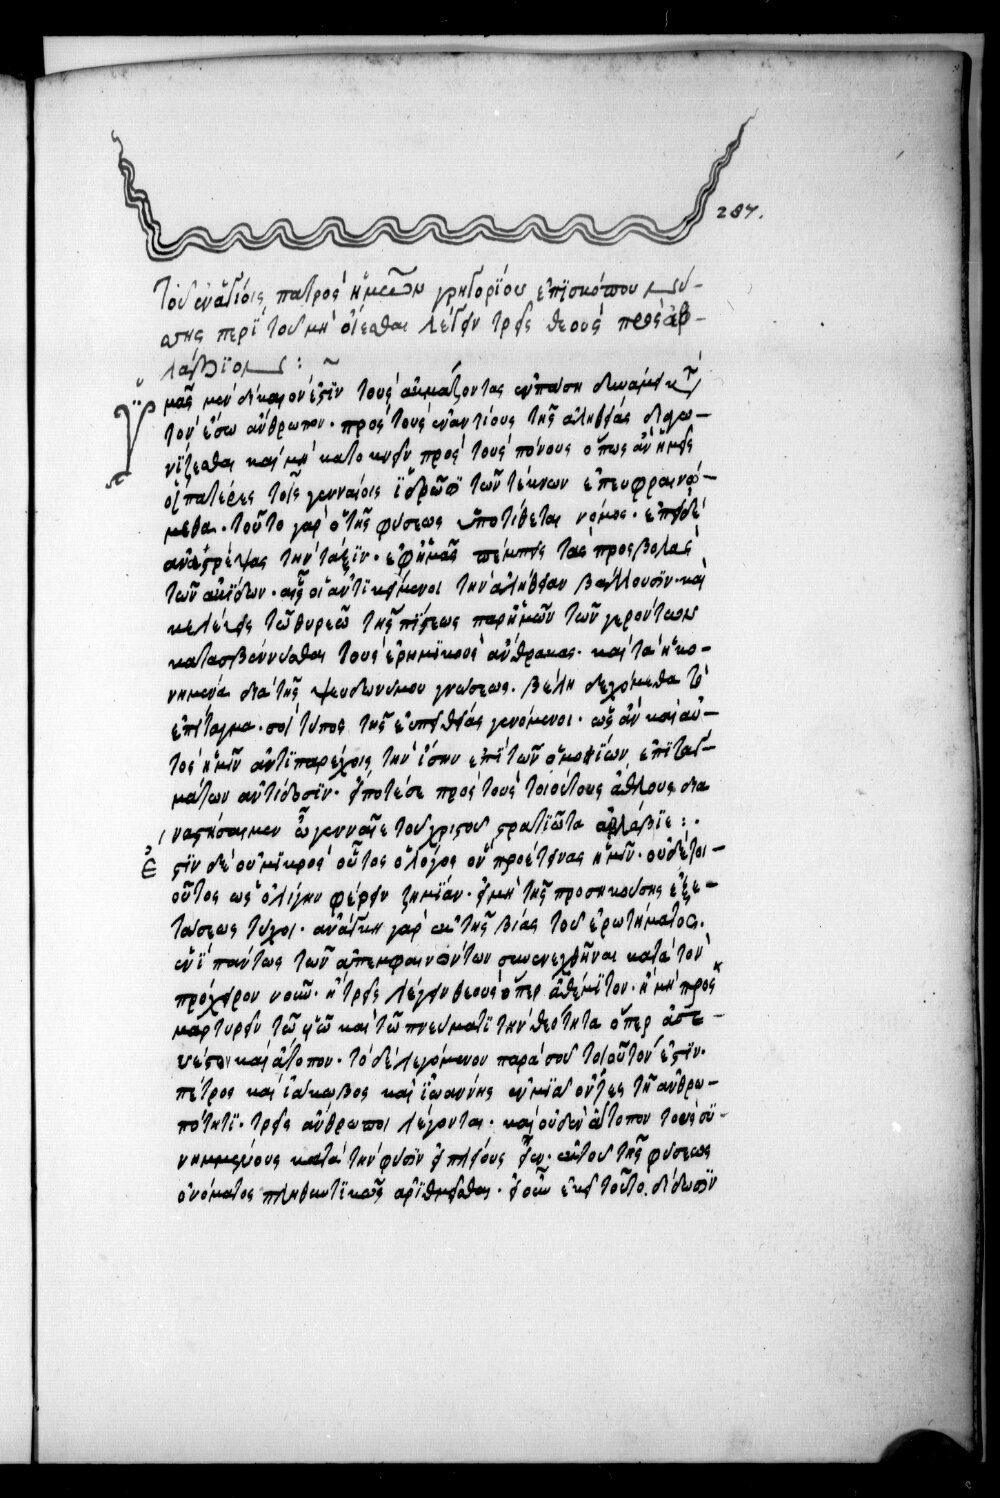 287.
Τοῦ ἐν ἁγίοις πατρὸς ἡμῶν γρηγορίου ἐπισκόπου νύσ-
σης περὶ τοῦ μὴ οἴεσθαι λέγειν τρεῖς θεούς πρὸς ἀβ-
λάβιον :~
Ὑμᾶς μὲν δίκαιον ἐστὶν τοὺς ἀκμάζοντας ἐν πάση δυνάμει κατὰ
τὸν ἔσω ἄνθρωπον· πρὸς τοὺς ἐναντίους τῆς ἀληθείας διαγω-
νίζεσθαι καὶ μὴ κατοκνεῖν πρὸς τοὺς πόνους ὅπως ἂν ἡμεῖς
οἱ πατέρες τοῖς γενναίοις ἱδρῶσι τῶν τέκνων ἐπευφραινώ-
μεθα· τοῦτο γὰρ ὁ τῆς φύσεως ὑποτίθεται νόμος· ἐπειδὲ
ἀναστρέψας τὴν τάξιν· ἐφ' ἡμᾶς πέμπεις τὰς προσβολὰς
τῶν ἀκίδων· αἷς οἱ ἀντικείμενοι τὴν ἀλήθειαν βάλλουσιν· καὶ
κελεύεις τῶ θυρεῶ τῆς πίστεως παρ' ἡμῶν τῶν γερόντων
κατασβέννυσθαι τοὺς ἐρημικοὺς ἄνθρακας· καὶ τὰ ἠκο-
νημένα διὰ τῆς ψευδωνύμου γνώσεως βέλη δεχόμεθα τὸ
ἐπίταγμα· σοὶ τύπος τῆς εὐπειθείας γενόμενοι· ὡς ἂν καὶ αὐ-
τὸς ἡμῖν ἀντιπαρέχοις τὴν ἴσην ἐπὶ τῶν ὁμοίων ἐπιταγ-
μάτων ἀντίδοσιν· εἴποτέ σε πρὸς τοὺς τοιούτους ἄθλους δια
ναστήσαιμεν ὦ γενναῖε τοῦ χριστοῦ στρατιῶτα ἀβλάβιε :·
Ἔστιν δὲ οὐ μικρὸς οὗτος ὁ λόγος ὃν προέτεινας ἡμῖν· οὐδὲ τοι-
οῦτος ὡς ὀλίγην φέρειν ζημίαν· εἰ μὴ τῆς προσηκούσης ἐξε-
τάσεως τύχοι· ἀνάγκη γὰρ ἐκ τῆς βίας τοῦ ἐρωτήματος.
ἑνὶ πάντως τῶν ἀπεμφαινόντων συνενεχθῆναι κατὰ τὸν
πρόχειρον νοῦν· ἢ τρεῖς λέγειν θεοὺς ὅπερ ἀθέμιτον· ἢ μὴ προσ
μαρτυρεῖν τῶ υἱῶ καὶ τῶ πνεύματι τὴν θεότητα ὅπερ ἀσε-
βές ἐστι καὶ ἄτοπον· τὸ δὲ λεγόμενον παρὰ σοῦ τοιοῦτον ἐστίν·
πέτρος καὶ ἰάκωβος καὶ ἰωάννης ἐν μιᾶ ὄντες τῆ ἀνθρω-
πότητι· τρεῖς ἄνθρωποι λέγονται· καὶ οὐδὲν ἄτοπον τοὺς συ-
νημμένους κατὰ τὴν φύσιν εἰ πλείους εἶεν· ἐκ τοῦ τῆς φύσεως
ὀνόματος πληθυντικῶς ἀριθμεῖσθαι· εἰ οὖν ἐκεῖ τοῦτο δίδωσιν